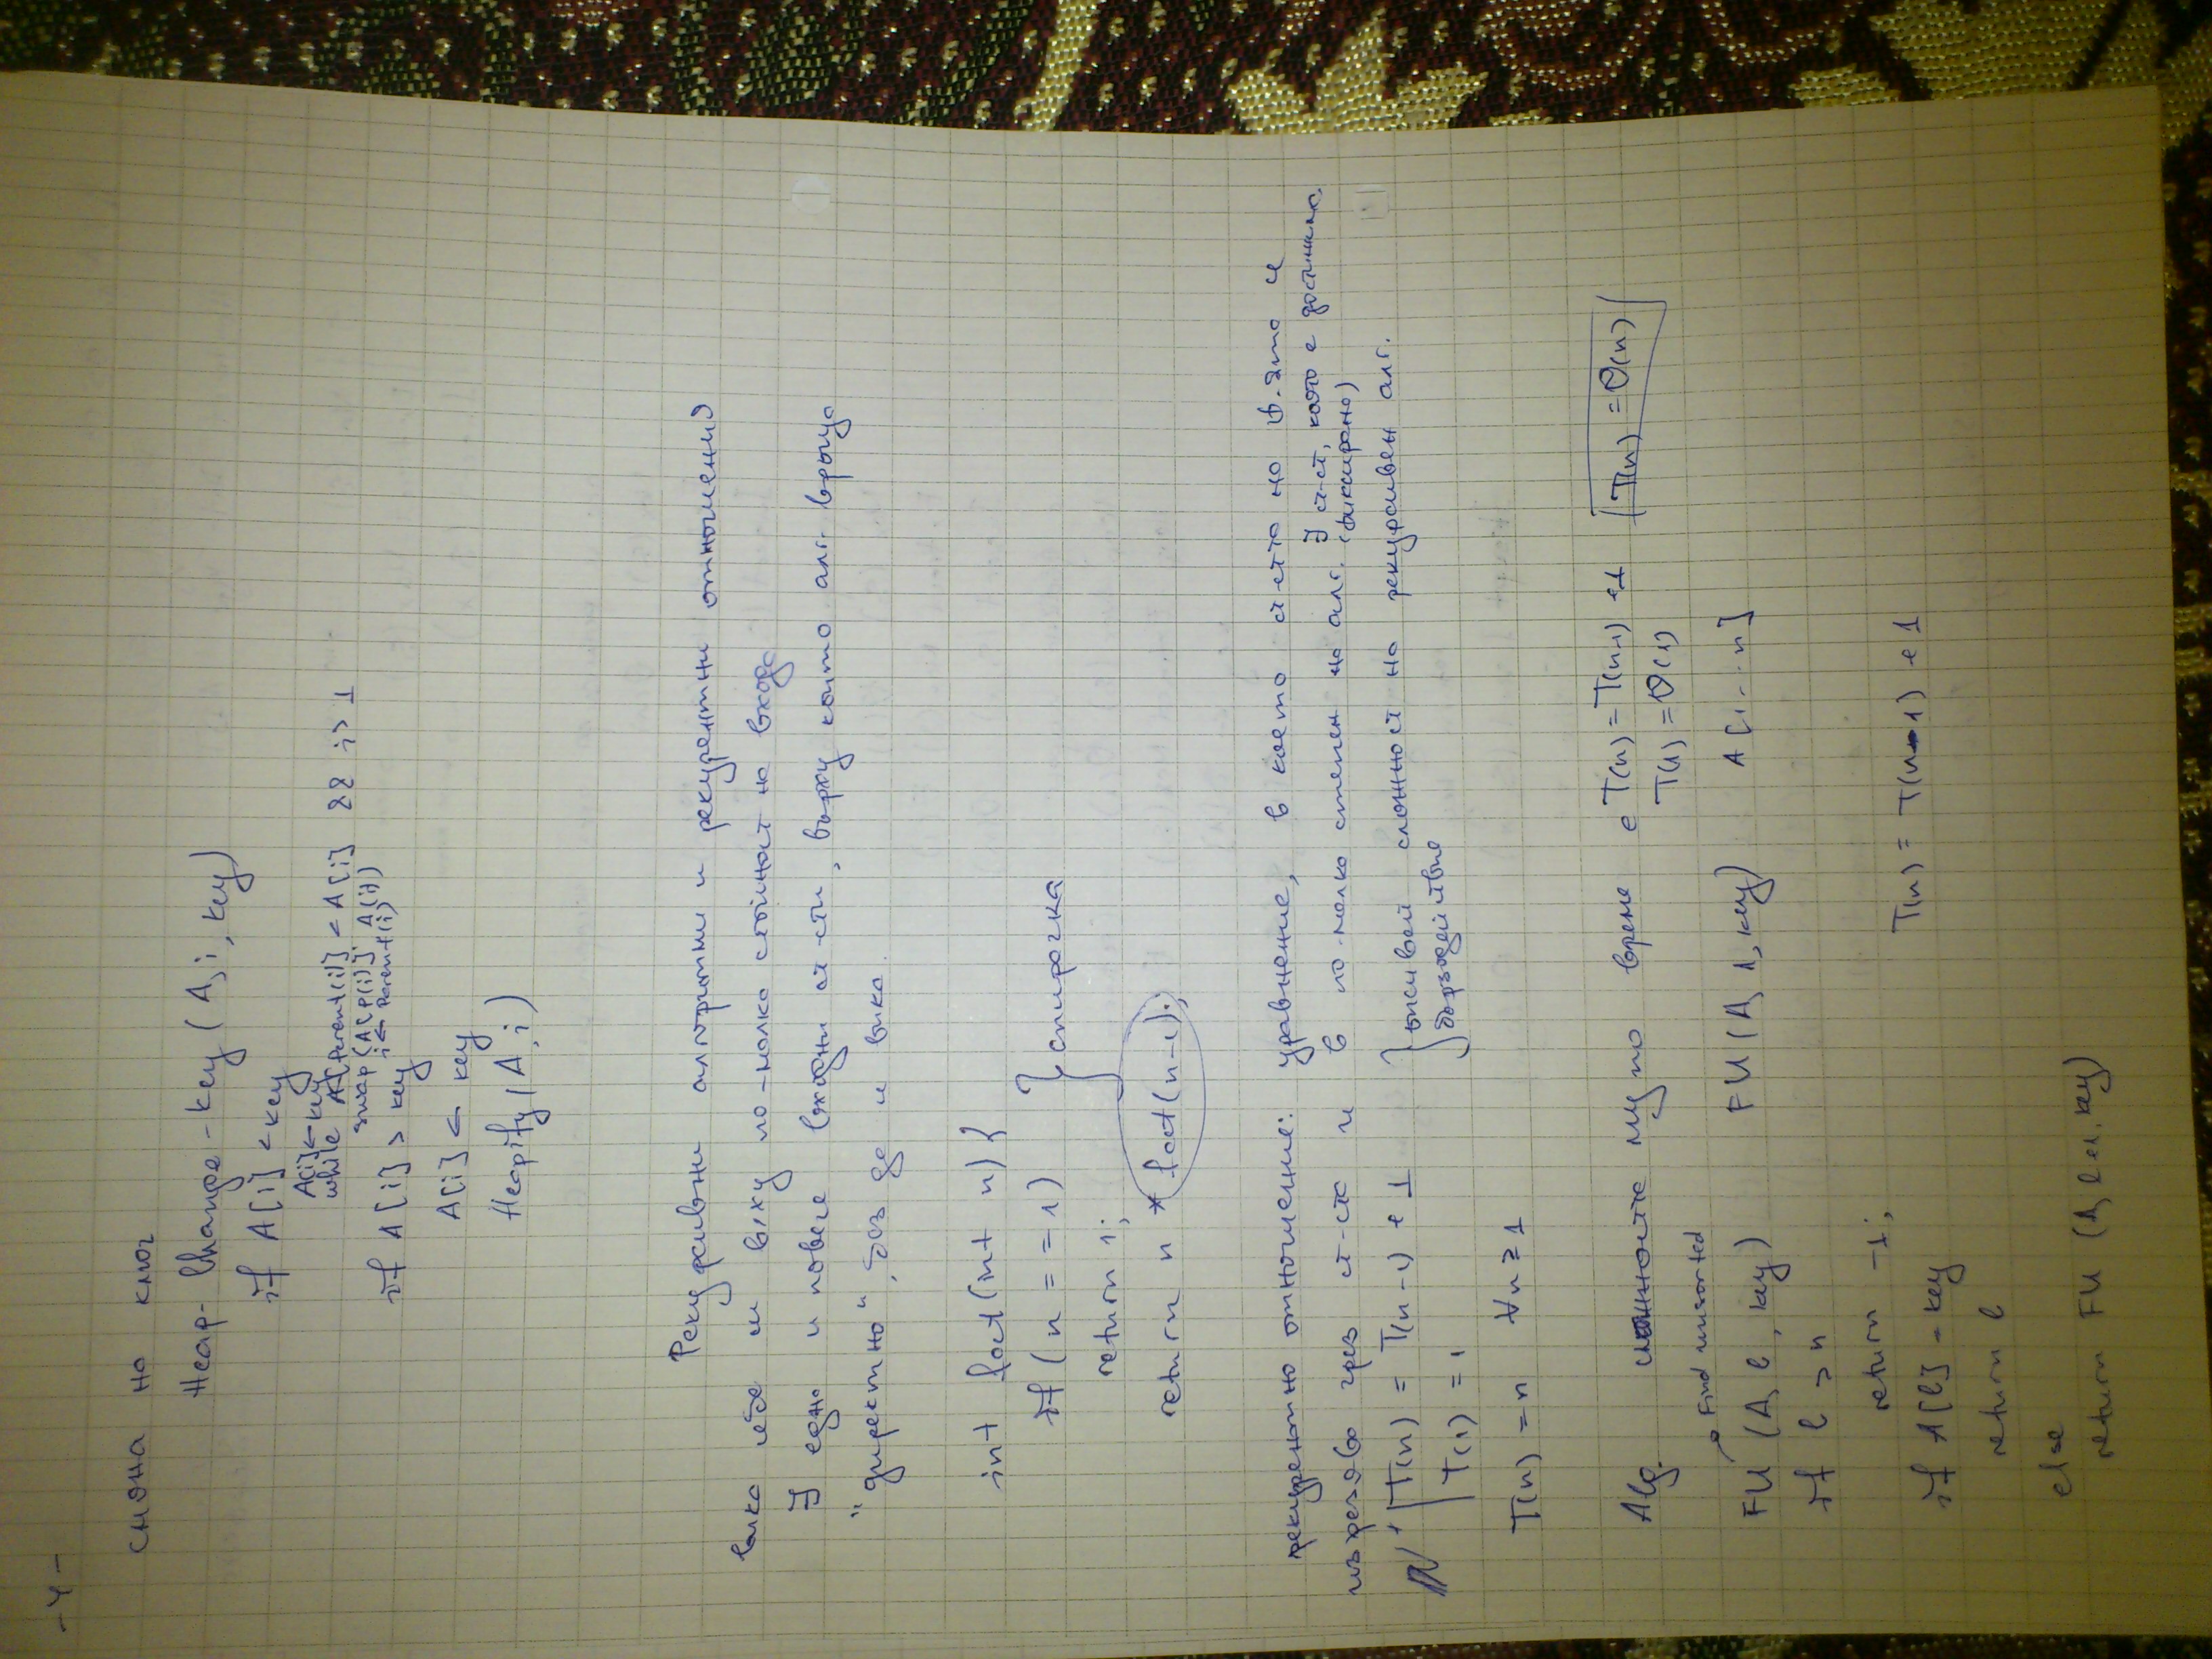 -4-
смяна на ключ
Heap-Change-key (A, i, key)
if A[i] < key
A[i] ← key
while A[Parent(i)] < A[i] && i > 1
swap (A[P(i)], A[i])
i ← Parent(i)
if A[i] > key
A[i] ← key
Heapify (A, i)
Рекурсивни алгоритми и рекурентни отношения
вика себе си върху по-малка стойност на входа
∃ едни и повече входни ст-сти, върху които алг. връща
"директно", без да и вика.
int fact(int n) {
if (n == 1)
return 1;
return n * fact(n-1);
} спирачка
рекурентно отношение: уравнение, в което ст-та на ф-ята се
изразява чрез ст-ст и в по-малка степен на алг. ∃ ст-ст, която е достижима
(фиксирано)
T(n) = T(n-1) + 1
T(1) = 1
сложност на рекурсивен алг.
бързодействие
T(n) = n ∀n ≥ 1
Alg. сложността му по време е T(n) = T(n-1) + 1
T(1) = Θ(1)
T(n) = Θ(n)
Find unsorted
FU (A, l, key) FU (A, 1, key) A[1...n]
if l > n
return -1;
if A[l] = key
return l
T(n) = T(n-1) + 1
else
return FU (A, l+1, key)